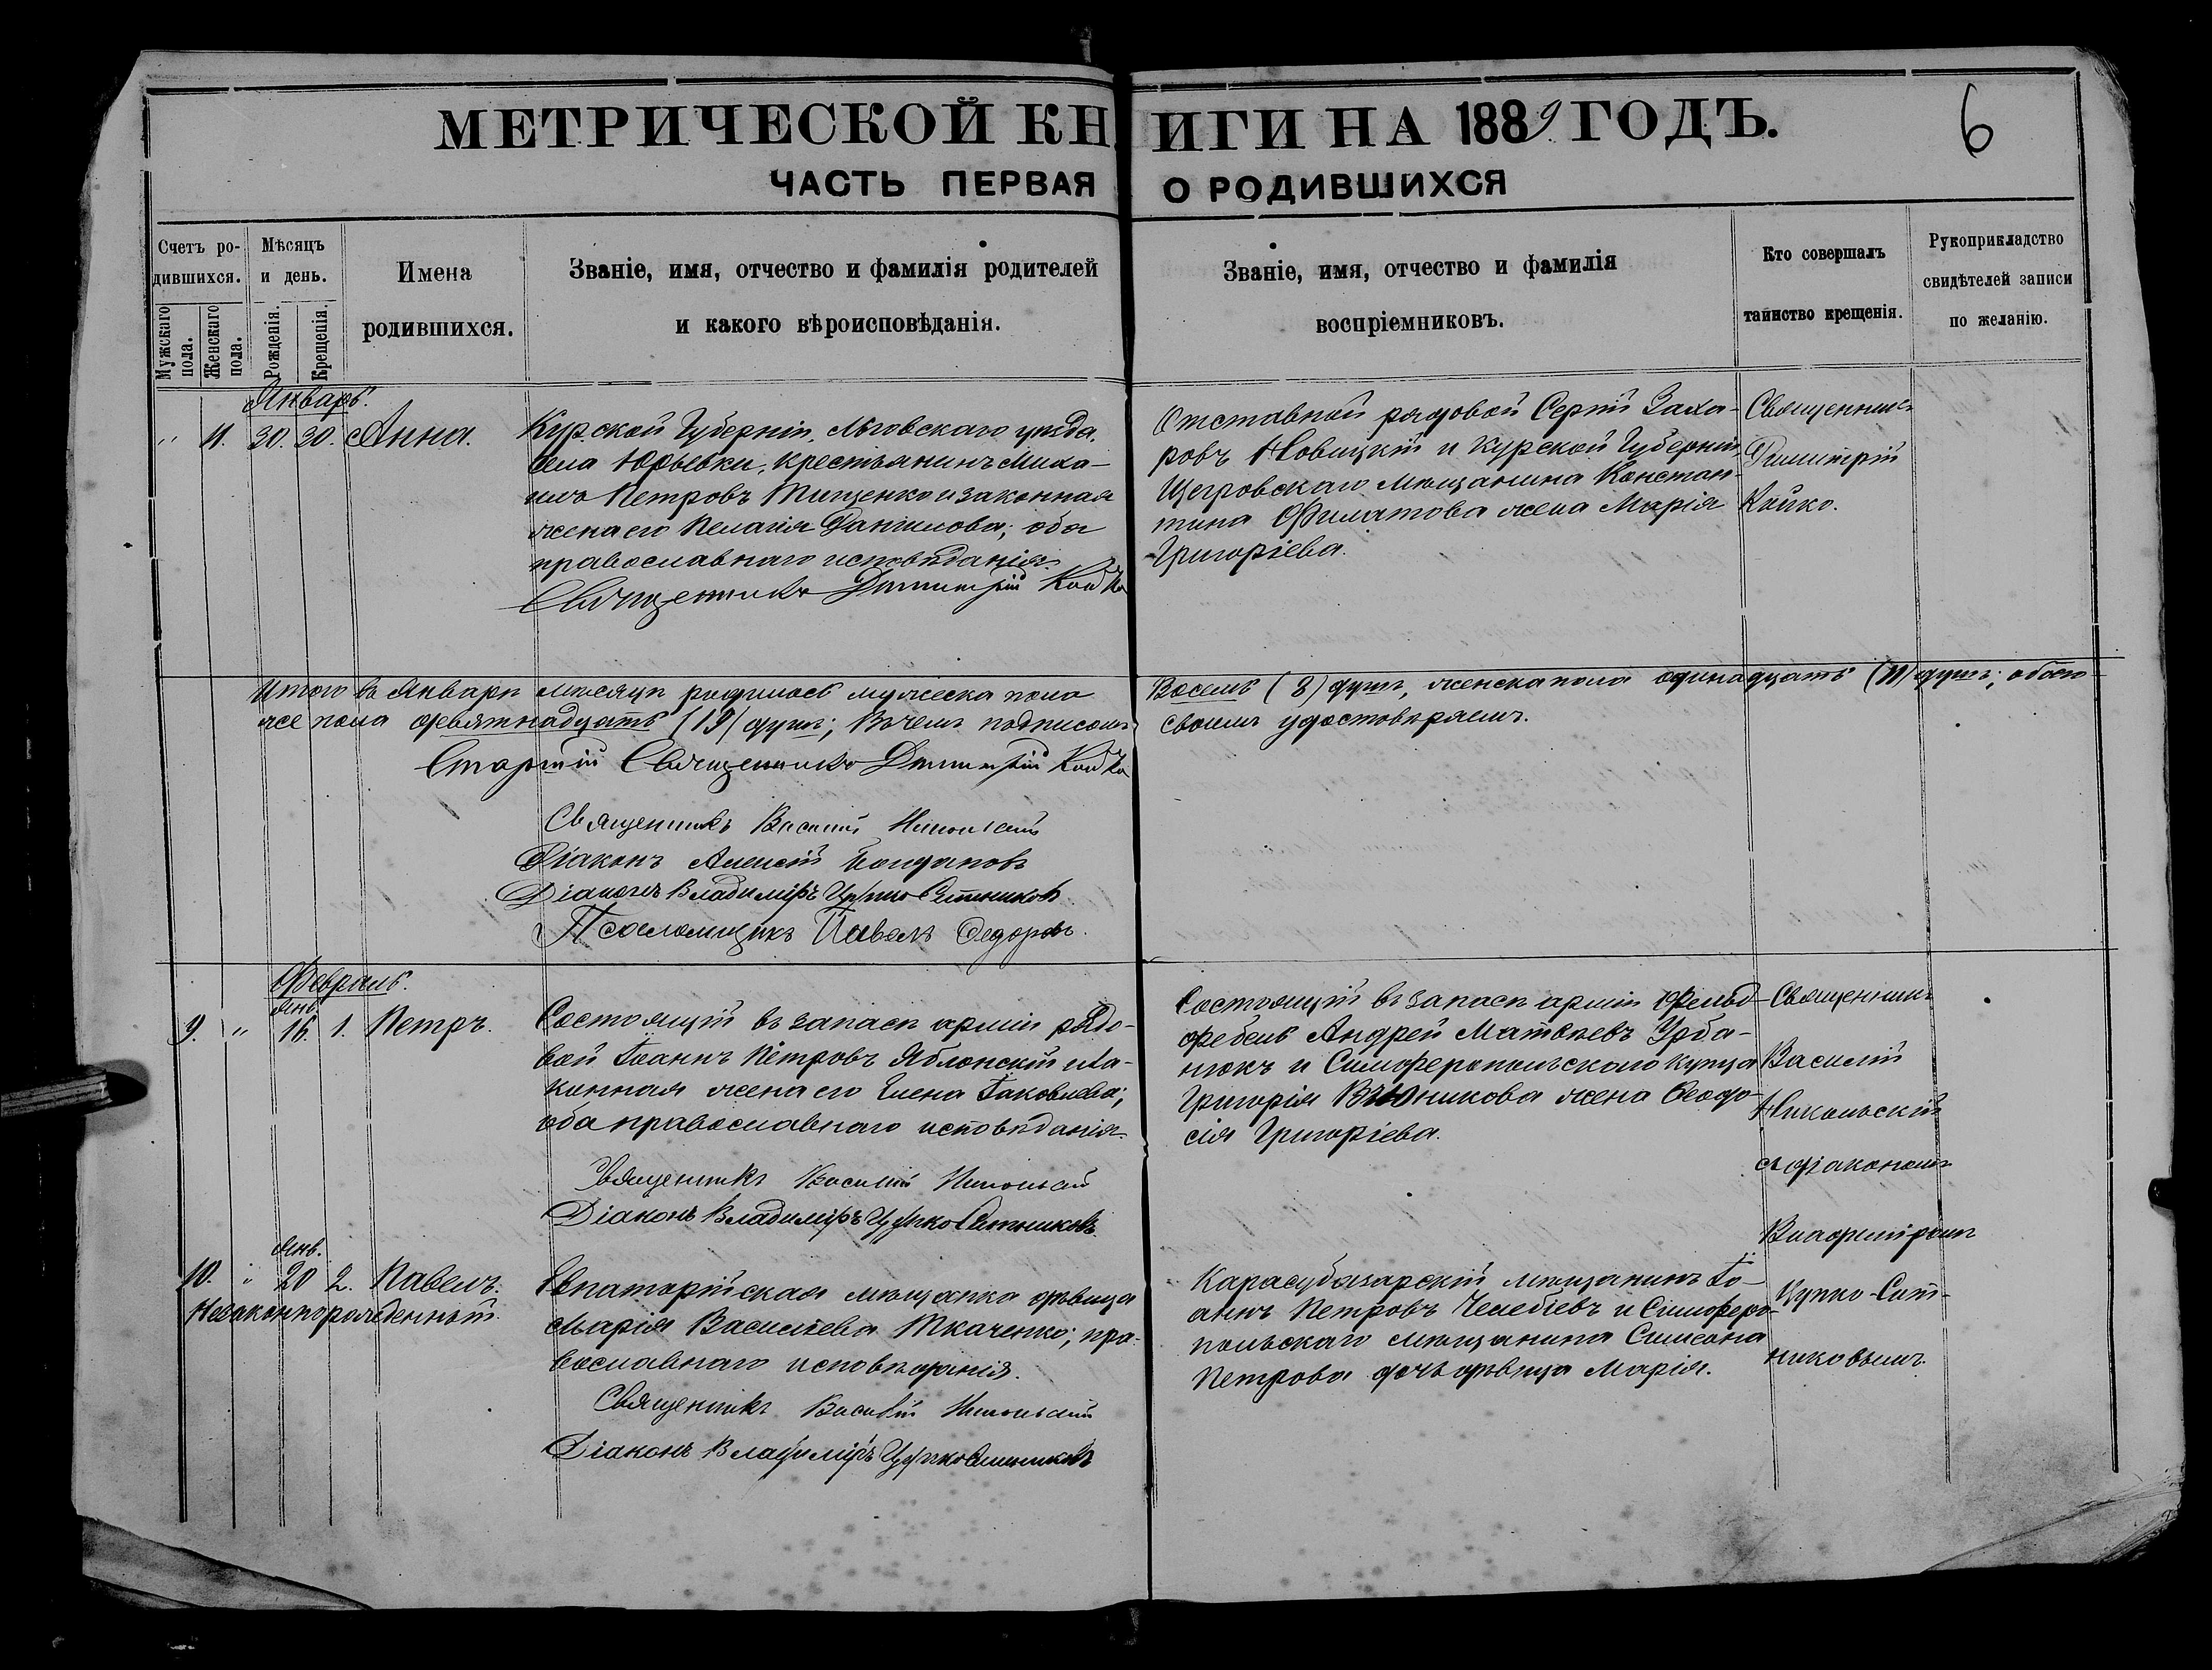 МЕТРИЧЕСКОЙ КНИГИ НА 1889 ГОДЪ.
6
ЧАСТЬ ПЕРВАЯ О РОДИВШИХСЯ
Счетъ ро-
дившихся.
Мужскаго пола.
Женскаго пола.
Мѣсяцъ
и день.
Рожденія.
Крещенія.
Имена
родившихся.
Званіе, имя, отчество и фамилія родителей
и какого вѣроисповѣданія.
Званіе, имя, отчество и фамилія
воспріемниковъ.
Кто совершалъ
таинство крещенія.
Рукоприкладство
свидѣтелей записи
по желанію.
Январь.
" 11. 30. 30. Анна.
Курской Губерніи, Льговскаго уѣзда,
села Юрьевки, крестьянинъ Миха-
илъ Петровъ Тищенко и законная
жена его Пелагія Даніилова; оба
православнаго исповѣданія.
Священникъ Димитрій Койко
Отставной рядовой Сергій Заха-
ровъ Новицкій и Курской Губерніи
Щегровскаго мѣщанина Констан-
тина Филатова жена Марія
Григоріева.
Священникъ
Димитрій
Койко.
Итого въ Январѣ мѣсяцѣ родилось мужеска пола Восемь (8) душъ, женска пола одинадцать (11) душъ; обоего
же пола девятнадцать (19) душъ; В чемъ подписомъ своимъ удостовѣряемъ.
Старшій Священникъ Димитрій Койко
Священникъ Василій Никольскій
Діаконъ Алексій Богдановъ
Діаконъ Владиміръ Цупко-Ситниковъ
Псаломщикъ Павелъ Федоровъ.
Февраль.
Янв.
9. " 16. 1. Петръ.
Состоящій въ запасѣ арміи рядо-
вой Іоаннъ Петровъ Яблонскій и за-
конная жена его Елена Іаковлева;
оба православнаго исповѣданія.
Священникъ Василій Никольскій
Діаконъ Владиміръ Цупко-Ситниковъ.
Состоящій въ запасѣ арміи фельд-
фебель Андрей Матвѣевъ Урба-
нюкъ и Симферопольскаго купца
Григорія жена Ѳеодо-
сія Григоріева.
Священникъ
Василій
Никольскій
съ діакономъ
Владиміромъ
Цупко-Сит-
никовымъ.
Янв.
10. " 20 2. Павелъ.
Незаконнорожденный.
Евпаторійская мѣщанка дѣвица
Марія Васильева Ткаченко; пра-
вославнаго исповѣданія.
Священникъ Василій Никольскій
Діаконъ Владиміръ Цупко-Ситниковъ
Карасубазарскій мѣщанинъ Іо-
аннъ Петровъ Челебіевъ и Симферо-
польскаго мѣщанина Симеона
Петрова дочь дѣвица Марія.